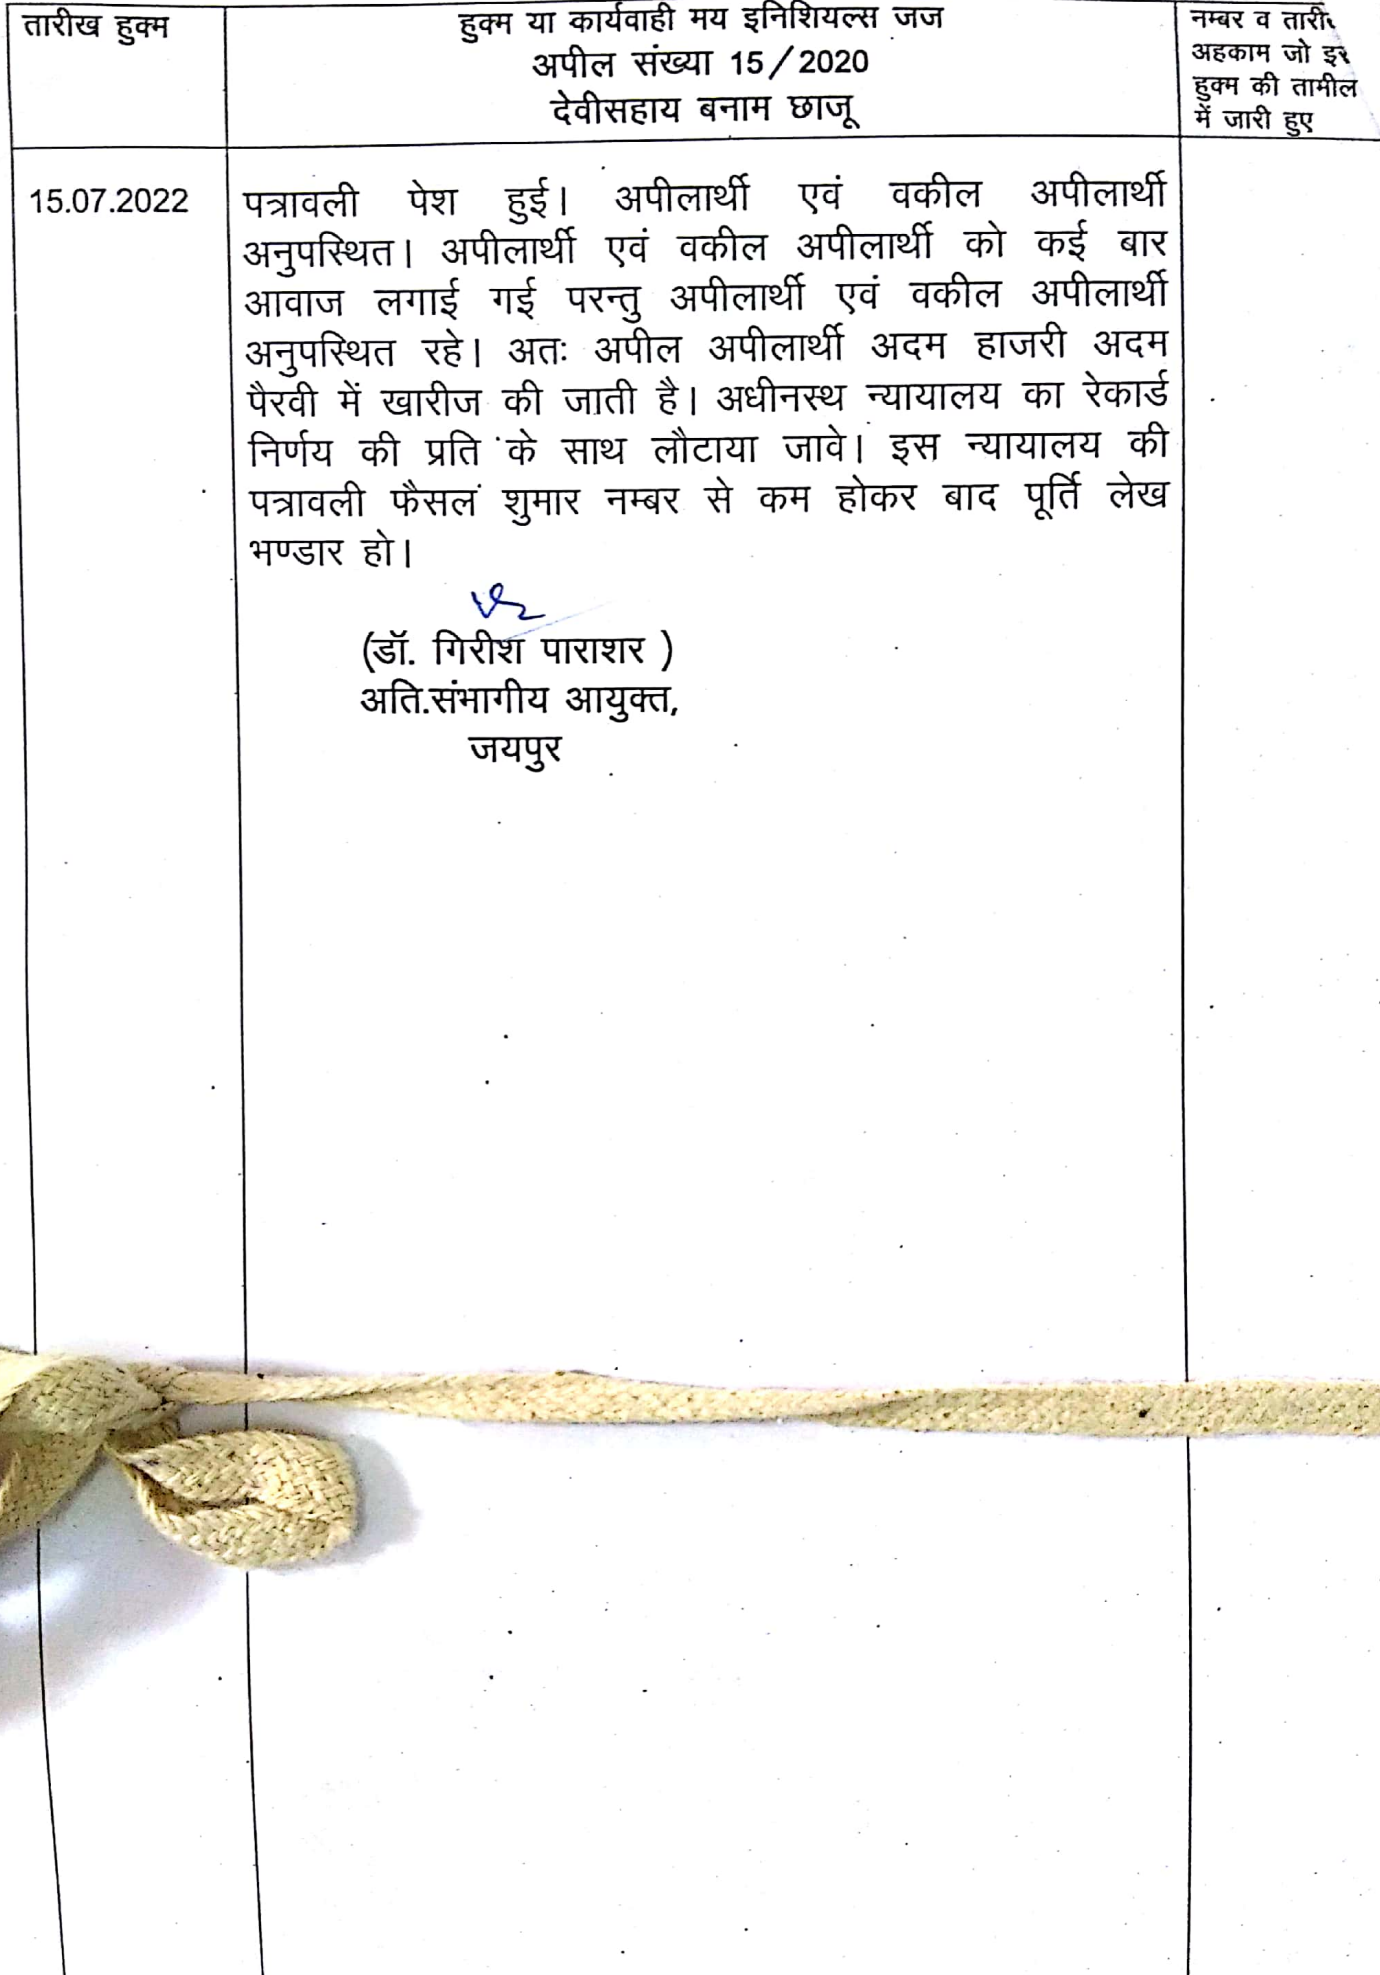 तारीख हुक्म
हुक्म या कार्यवाही मय इनिशियल्स जज
अपील संख्या 15/2020
देवीसहाय बनाम छाजू
नम्बर व
अहकाम जो
हुक्म की तामील
में जारी हुए
15.07.2022
पत्रावली पेश हुई। अपीलार्थी एवं वकील अपीलार्थी
अनुपस्थित। अपीलार्थी एवं वकील अपीलार्थी को कई बार
आवाज लगाई गई परन्तु अपीलार्थी एवं वकील अपीलार्थी
अनुपस्थित रहे। अतः अपील अपीलार्थी अदम हाजरी अदम
पैरवी में खारीज की जाती है। अधीनस्थ न्यायालय का रेकार्ड
निर्णय की प्रति के साथ लौटाया जावे। इस न्यायालय की
पत्रावली फैसलं शुमार नम्बर से कम होकर बाद पूर्ति लेख
भण्डार हो।
(डॉ. गिरीश पाराशर )
अति.संभागीय आयुक्त,
जयपुर